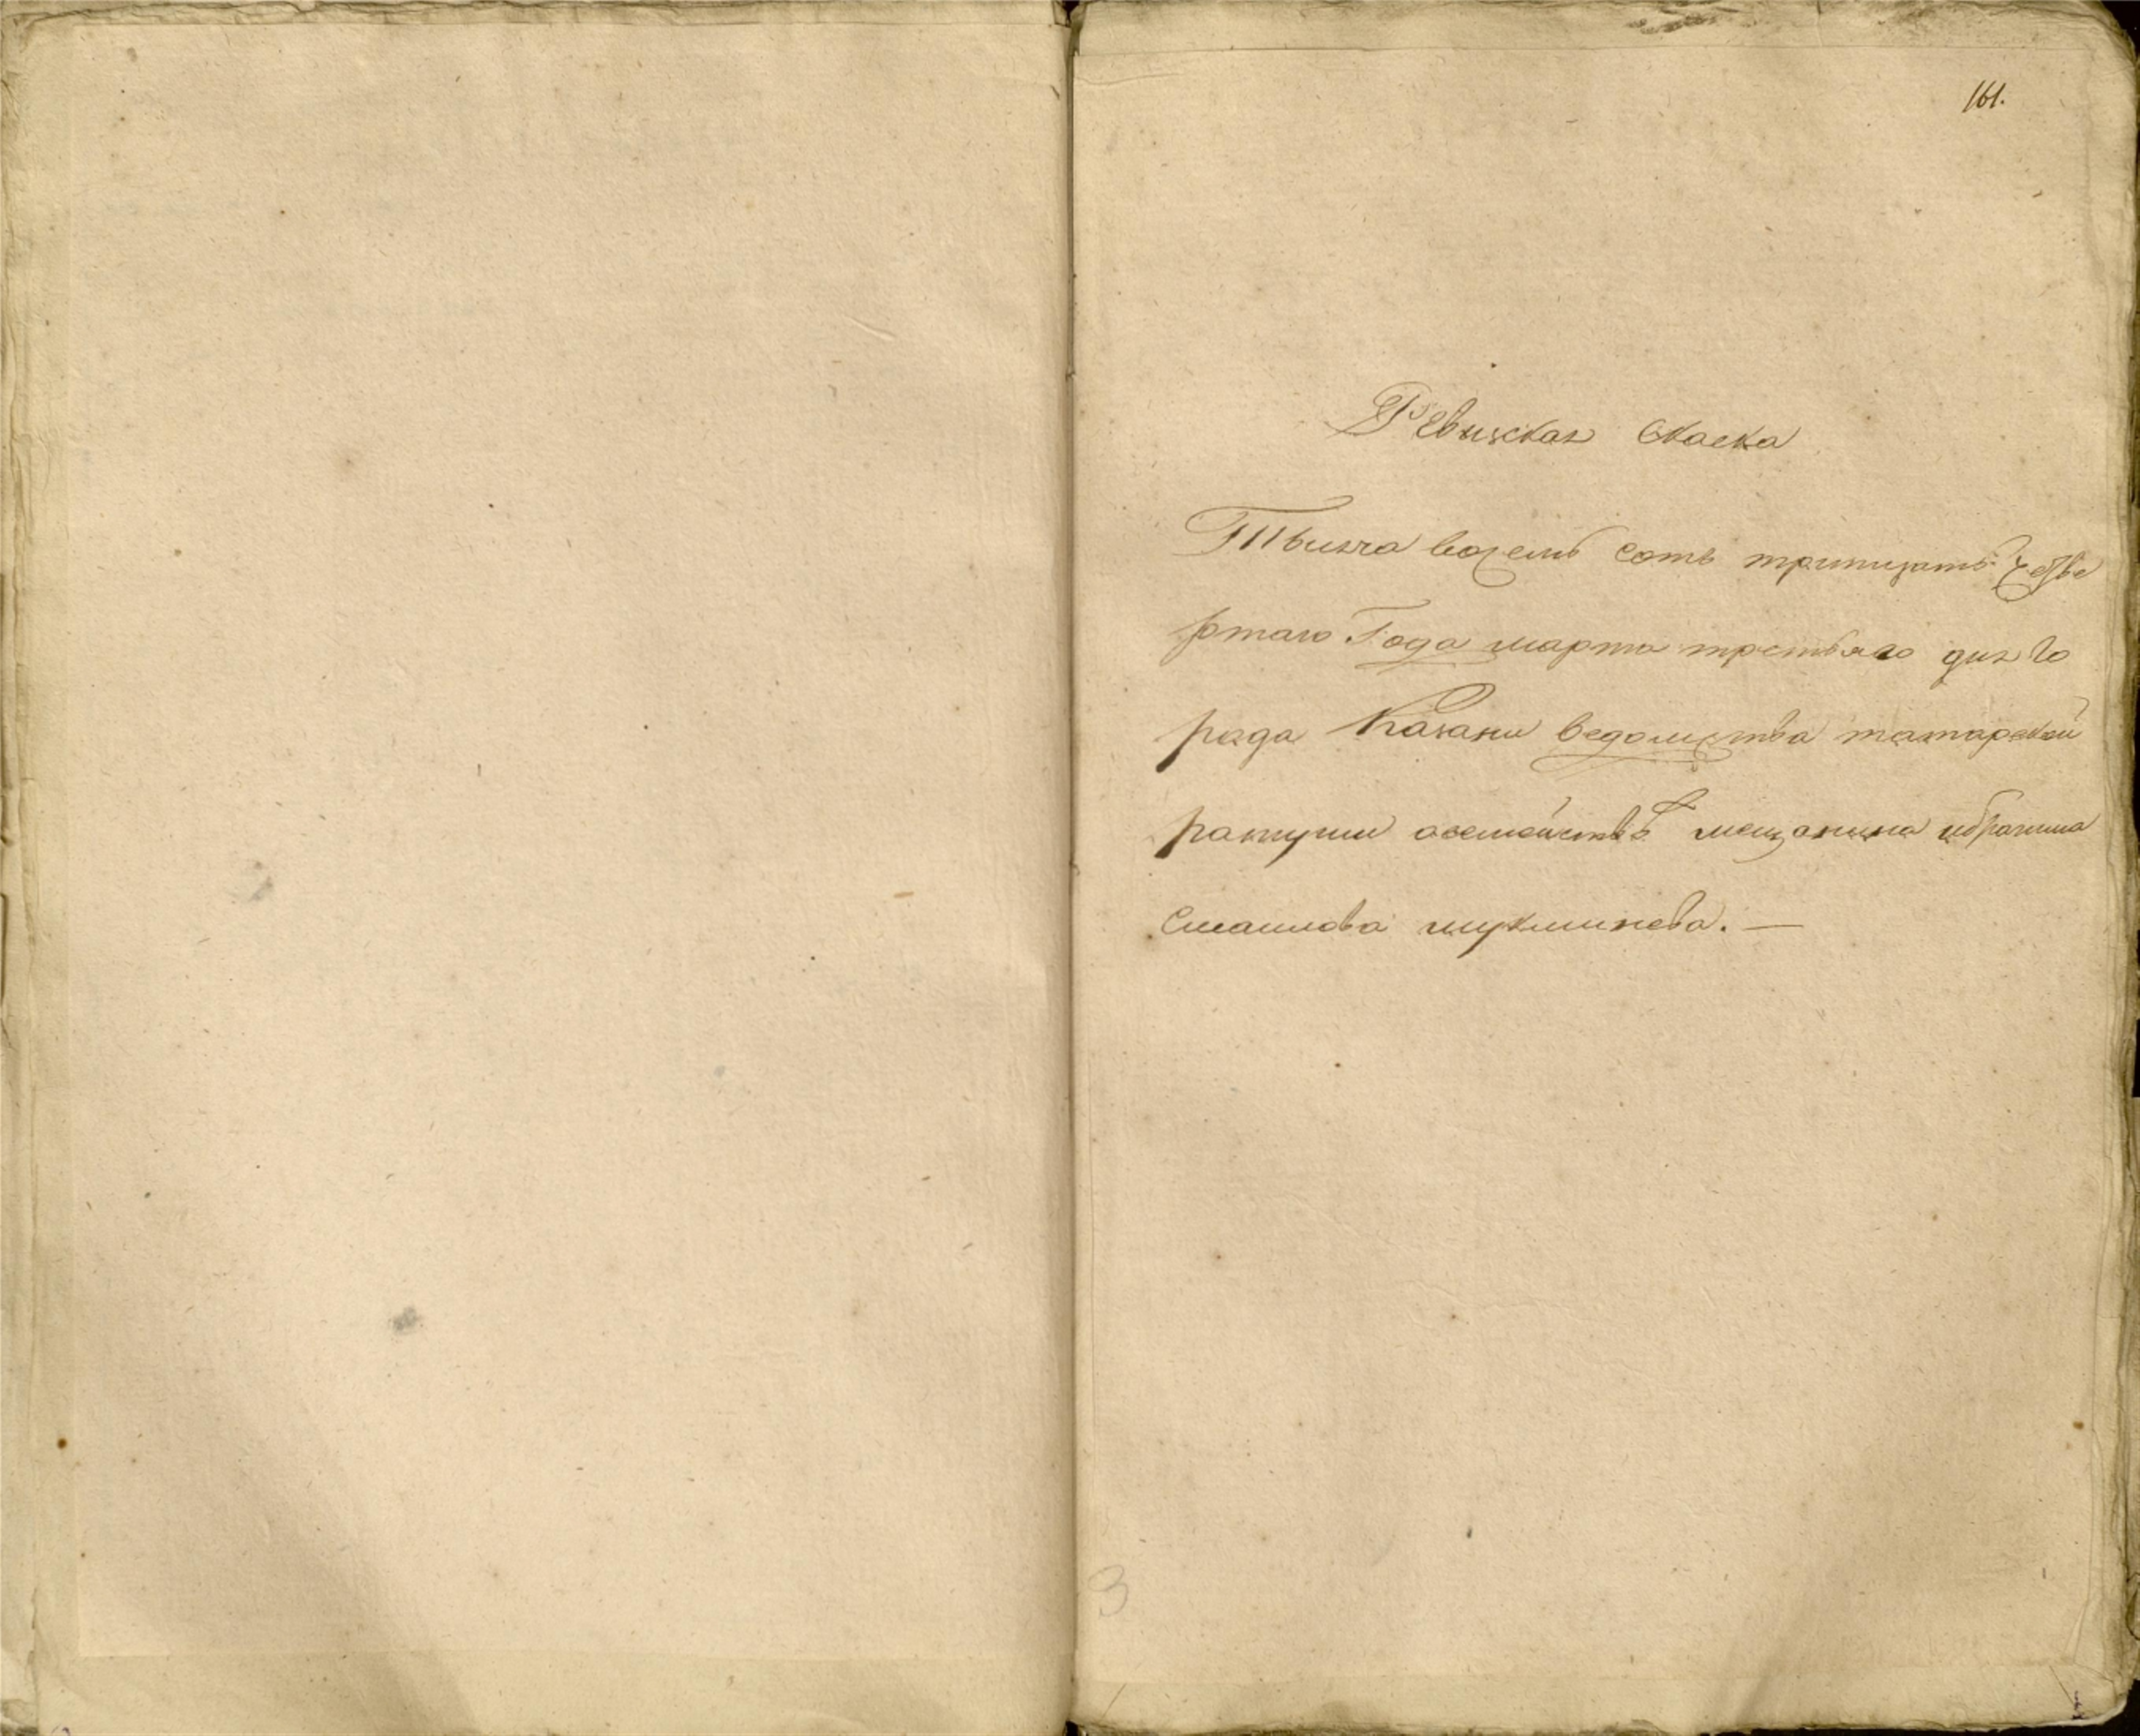 161.
Ревизская Скаска
Тысяча восемь сотъ тритцать четве
ртаго Года марта третьяго дня го
рада Казани ведомства татарской
ратуши осемействѣ мещанина ибрагима
Смаилова мукминева. —
3